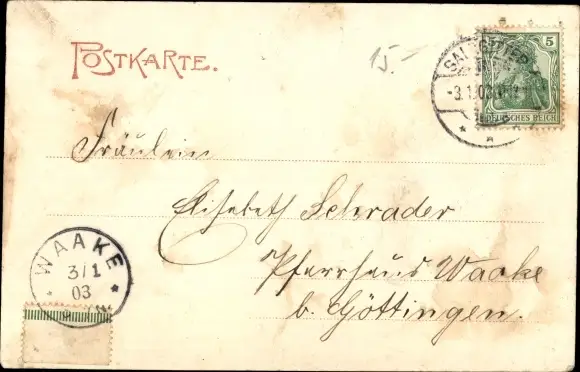 POSTKARTE.
15.-
5
DEUTSCHES REICH
Fräulein
Elisabeth Schrader
Pfarrhaus Waake
b. Göttingen.
WAAKE
3/1
03